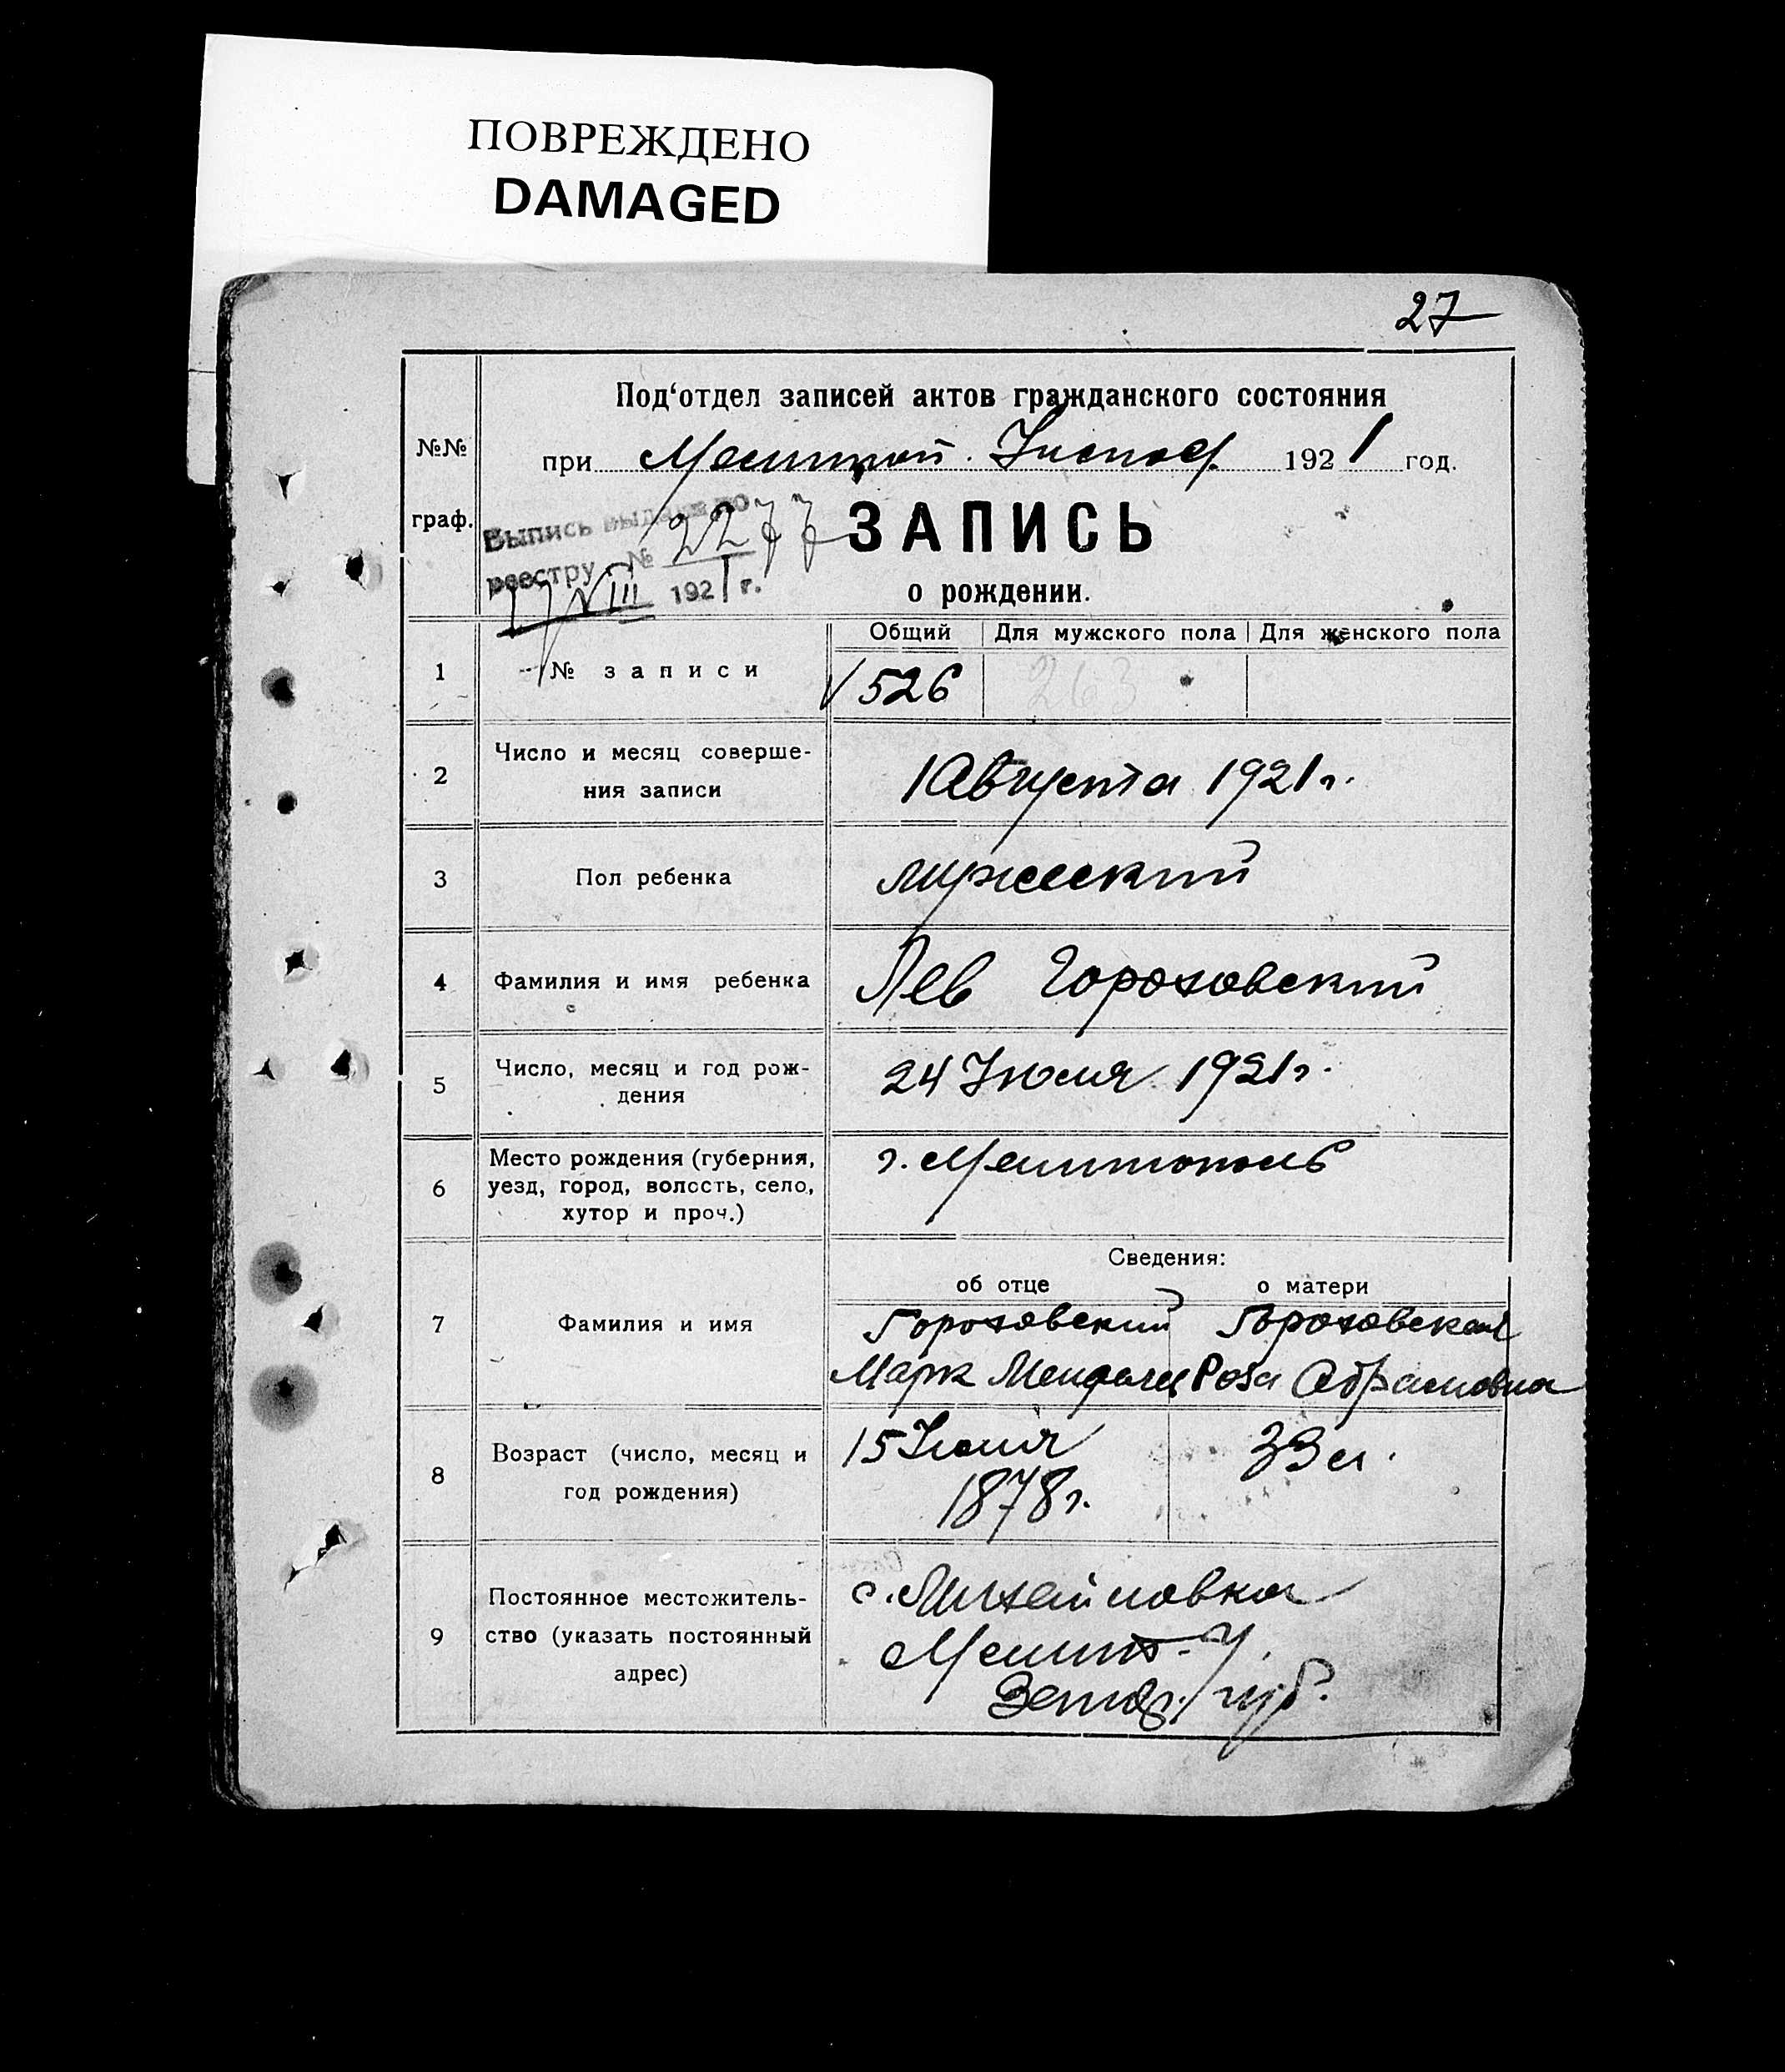 ПОВРЕЖДЕНО
DAMAGED
27
Под‘отдел записей актов гражданского состояния
№№ граф.
при Мелитпой. Исполк. 1921 год.
Выпись выдана по
реестру № 2277
17/VIII 1921 г.
ЗАПИСЬ
о рождении.
Общий Для мужского пола Для женского пола
1 № записи 526 263
2 Число и месяц соверше-
ния записи 1 Августа 1921 г.
3 Пол ребенка мужеский
4 Фамилия и имя ребенка Лев Гороховский
5 Число, месяц и год рож-
дения 24 Июля 1921 г.
6 Место рождения (губерния,
уезд, город, волость, село,
хутор и проч.) г. Мелитополь
Сведения:
об отце о матери
7 Фамилия и имя Гороховский Гороховская
Марк Менделев Роза Абрамовна
8 Возраст (число, месяц и
год рождения) 15 Июля 1878 г. 33 л.
9 Постоянное местожитель-
ство (указать постоянный
адрес) с. Михайловка
Мелит. у.
губ.